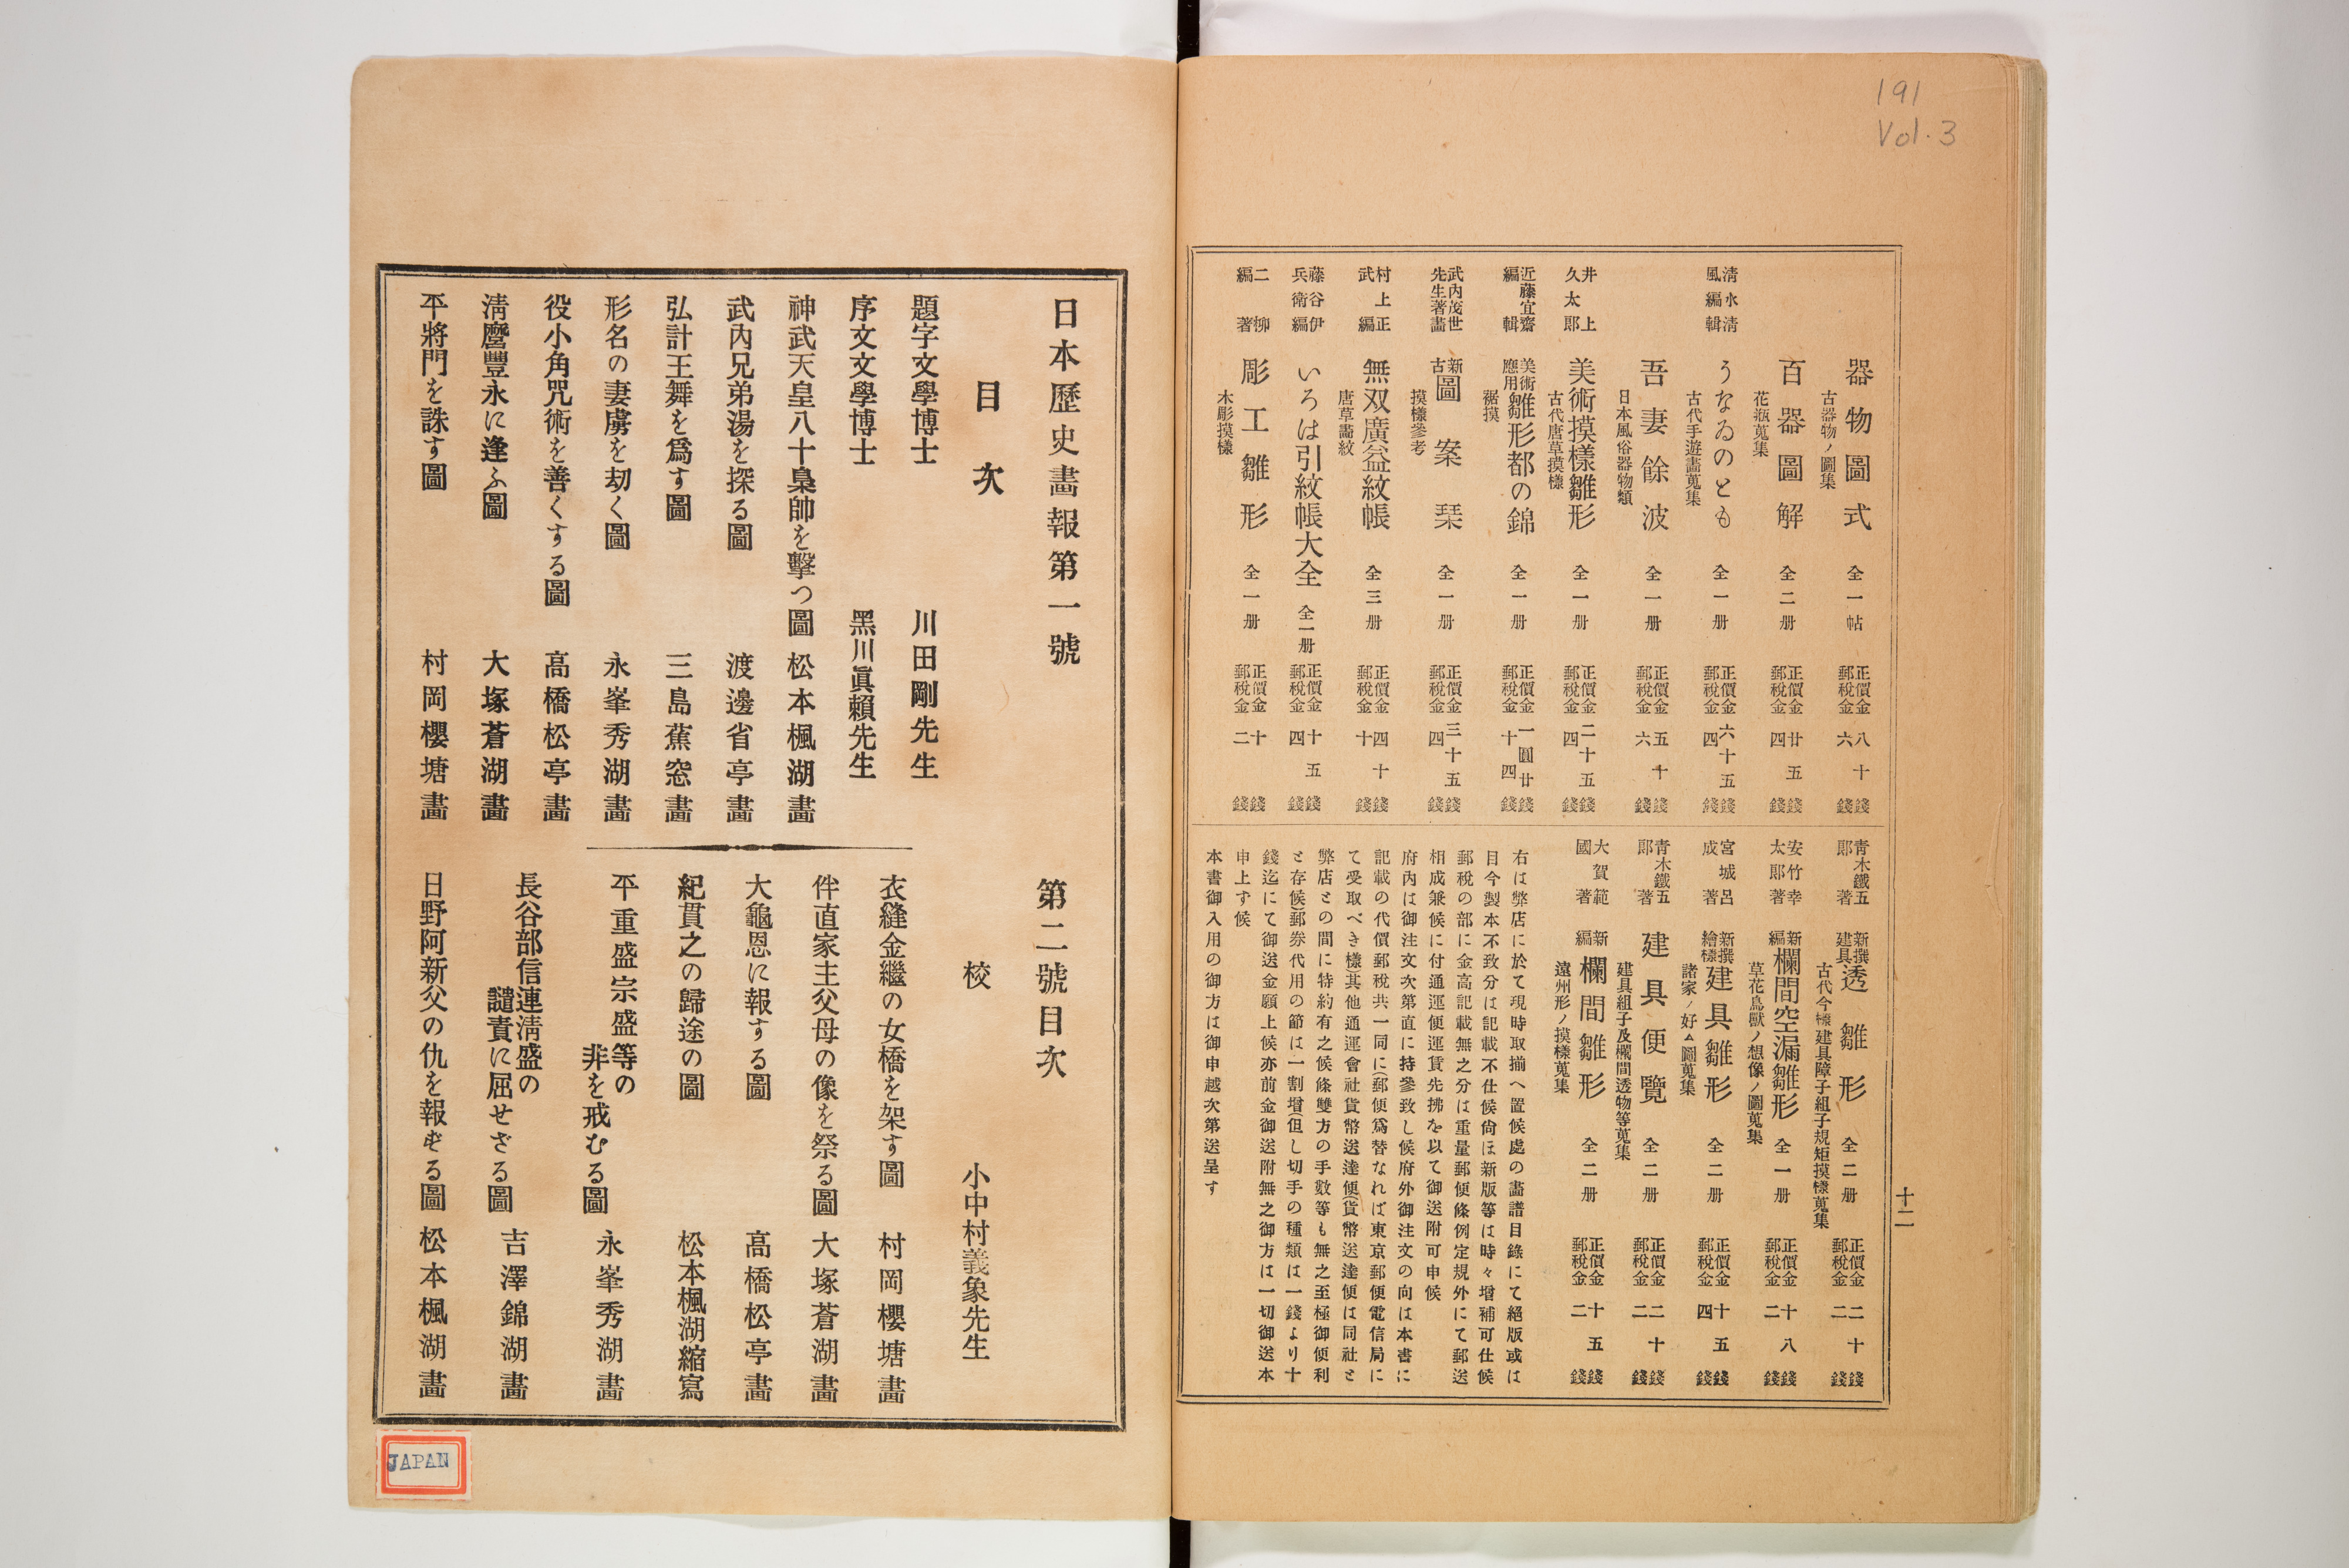 191
Vol. 3
器物圖式 全一帖 正價金八十錢 郵税金六錢
古器物ノ圖集
百器圖解 全二册 正價金廿五錢 郵税金四錢
花瓶蒐集
清水清風編輯 うなゐのとも 全一册 正價金六十五錢 郵税金四錢
古代手遊畵蒐集
吾妻餘波 全一册 正價金五十錢 郵税金六錢
日本風俗器物類
井上久太郎 美術摸樣雛形 全一册 正價金二十五錢 郵税金四錢
古代唐草摸樣
近藤宜齋編輯 美術應用雛形都の錦 全一册 正價金一圓廿錢 郵税金十四錢
裾摸
武内茂世先生著畵 新古圖案栞 全一册 正價金三十五錢 郵税金四錢
摸樣參考
村上正武編 無双廣益紋帳 全三册 正價金四十錢 郵税金十錢
唐草畵紋
藤谷伊兵衛編 いろは引紋帳大全 全一册 正價金十五錢 郵税金四錢
二柳編著 彫工雛形 全一册 正價金十錢 郵税金二錢
木彫摸樣
青木鐵五郎著 新撰建具透雛形 全二册 正價金二十錢 郵税金二錢
古代今樣建具障子組子規矩摸樣蒐集
安竹幸太郎著 新編欄間空漏雛形 全一册 正價金十八錢 郵税金二錢
草花鳥獸ノ想像ノ圖蒐集
宮城呂成著 新撰繪樣建具雛形 全二册 正價金十五錢 郵税金四錢
諸家ノ好ム圖蒐集
青木鐵五郎著 建具便覽 全二册 正價金二十錢 郵税金二錢
建具組子及欄間透物等蒐集
大賀範國著 新編欄間雛形 全二册 正價金十五錢 郵税金二錢
遠州形ノ摸樣蒐集
右は弊店に於て現時取揃へ置候處の畵譜目錄にて絕版或は
目今製本不致分は記載不仕候尙ほ新版等は時々增補可仕候
郵税の部に金高記載無之分は重量郵便條例定規外にて郵送
相成兼候に付通運便運賃先拂を以て御送附可申候
府内は御注文次第直に持參致し候府外御注文の向は本書に
記載の代價郵税共一同に(郵便爲替なれば東京郵便電信局に
て受取べき樣)其他通運會社貨幣送達便(貨幣送達便は同社と
弊店との間に特約有之候條雙方の手數等も無之至極御便利
と存候)郵券代用の節は一割增(但し切手の種類は一錢より十
錢迄にて御送金願上候亦前金御送附無之御方は一切御送本
申上ず候
本書御入用の御方は御申越次第送呈す
十二
日本歷史畫報第一號
目次
題字文學博士 川田剛先生
序文文學博士 黑川眞賴先生
神武天皇八十梟帥を擊つ圖 松本楓湖畫
武内兄弟湯を探る圖 渡邊省亭畫
弘計王舞を爲す圖 三島蕉窓畫
形名の妻虜を劫く圖 永峯秀湖畫
役小角咒術を善くする圖 高橋松亭畫
淸麿豐永に逢ふ圖 大塚蒼湖畫
平將門を誅す圖 村岡櫻塘畫
第二號目次
校 小中村義象先生
衣縫金繼の女橋を架す圖 村岡櫻塘畫
伴直家主父母の像を祭る圖 大塚蒼湖畫
大龜恩に報する圖 高橋松亭畫
紀貫之の歸途の圖 松本楓湖縮寫
平重盛宗盛等の非を戒むる圖 永峯秀湖畫
長谷部信連淸盛の譴責に屈せざる圖 吉澤錦湖畫
日野阿新父の仇を報ずる圖 松本楓湖畫
JAPAN